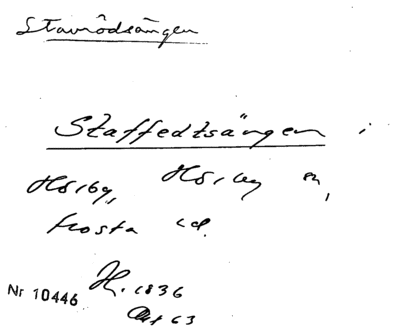 Stavrödsängen
Staffedtsängen i
Hörby, Hörby sn,
Frosta hd.
H. 1836
Nr 10446
63